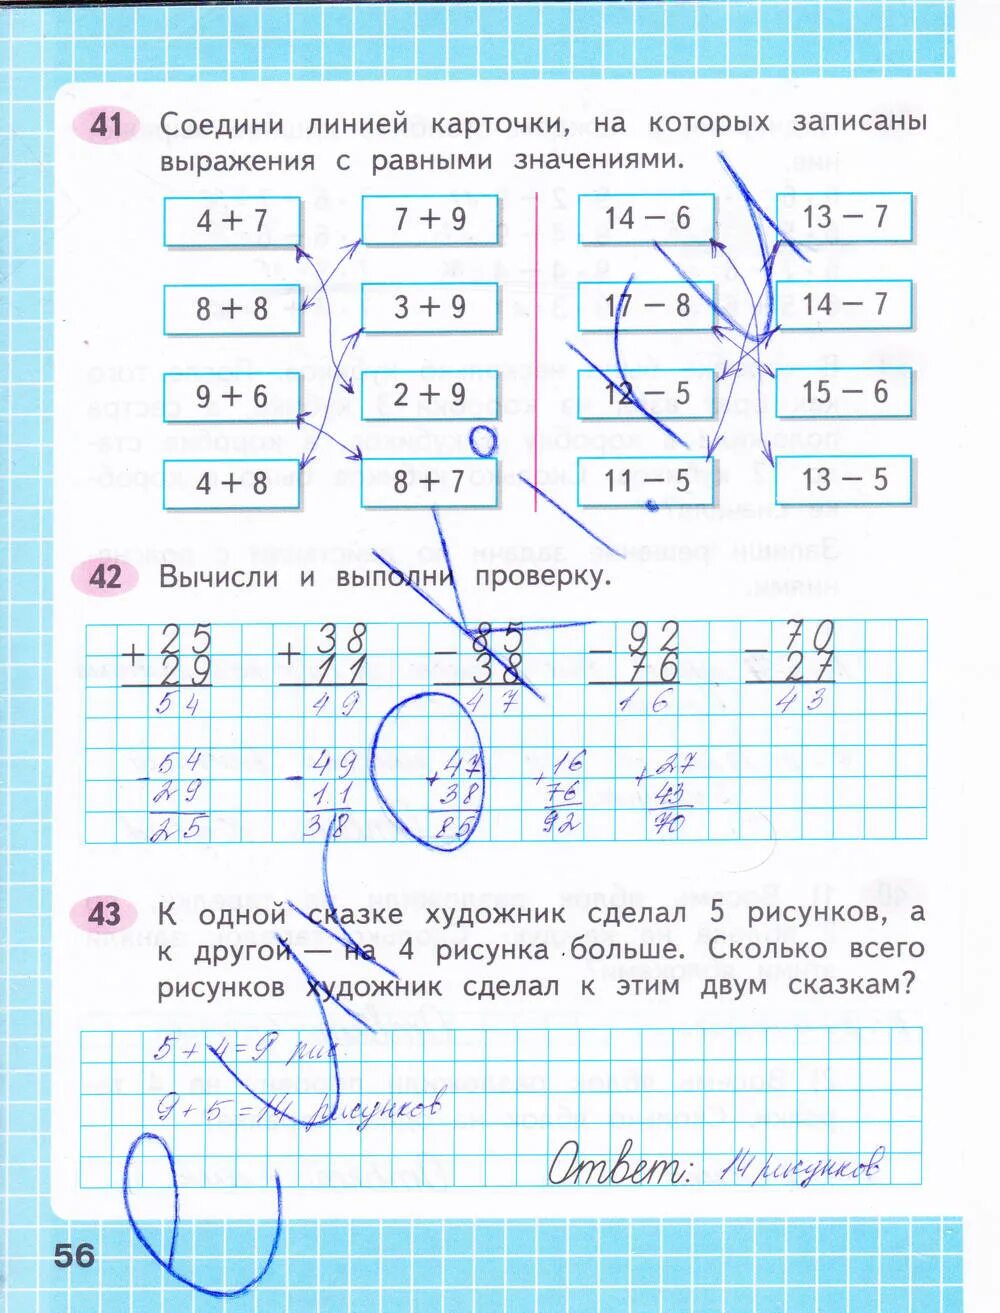 41 Соедини линией карточки, на которых записаны
выражения с равными значениями.
4 + 7 7 + 9 14 − 6 13 − 7
8 + 8 3 + 9 17 − 8 14 − 7
9 + 6 2 + 9 12 − 5 15 − 6
4 + 8 8 + 7 11 − 5 13 − 5
42 Вычисли и выполни проверку.
+ 25 + 38 − 85 − 92 − 70
29 11 38 76 27
54 49 47 16 43
− 54 − 49 + 47 + 16 + 27
29 11 38 76 43
25 38 85 92 70
43 К одной сказке художник сделал 5 рисунков, а
к другой — на 4 рисунка больше. Сколько всего
рисунков художник сделал к этим двум сказкам?
5 + 4 = 9 рис.
9 + 5 = 14 рисунков
Ответ: 14 рисунков
56